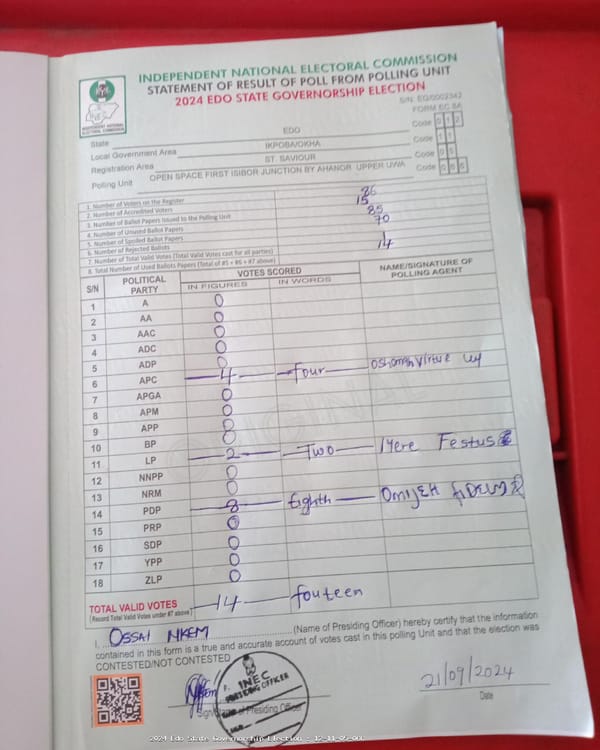 INDEPENDENT NATIONAL ELECTORAL COMMISSION
STATEMENT OF RESULT OF POLL FROM POLLING UNIT
2024 EDO STATE GOVERNORSHIP ELECTION
INEC
INDEPENDENT NATIONAL ELECTORAL COMMISSION
S/N: EG/0002342
FORM EC 8A
State EDO Code 0 1 2
Local Government Area IKPOBA/OKHA Code 1 1
Registration Area ST. SAVIOUR Code 0 5
Polling Unit OPEN SPACE FIRST ISIBOR JUNCTION BY AHANOR UPPER UWA Code
1. Number of Voters on the Register 86
2. Number of Accredited Voters 15
3. Number of Ballot Papers Issued to the Polling Unit 85
4. Number of Unused Ballot Papers 70
5. Number of Spoiled Ballot Papers
6. Number of Rejected Ballots 1
7. Number of Total Valid Votes (Total Valid Votes cast for all parties) 14
8. Total Number of Used Ballots Papers (Total of #5 + #6 + #7 above)
S/N POLITICAL PARTY VOTES SCORED NAME/SIGNATURE OF POLLING AGENT
IN FIGURES IN WORDS
1 A 0
2 AA 0
3 AAC 0
4 ADC 0
5 ADP 0
6 APC 4 four
7 APGA 0
8 APM 0
9 APP 0
10 BP 0
11 LP 2 Two Iyere Festus
12 NNPP 0
13 NRM 0
14 PDP 8 Eighth
15 PRP 0
16 SDP 0
17 YPP 0
18 ZLP 0
TOTAL VALID VOTES 14 fouteen
[Record Total Valid Votes under #7 above]
I, OSSAI NKEM (Name of Presiding Officer) hereby certify that the information
contained in this form is a true and accurate account of votes cast in this polling Unit and that the election was
CONTESTED/NOT CONTESTED
INEC
PRESIDING OFFICER
Signature of Presiding Officer
21/09/2024
Date